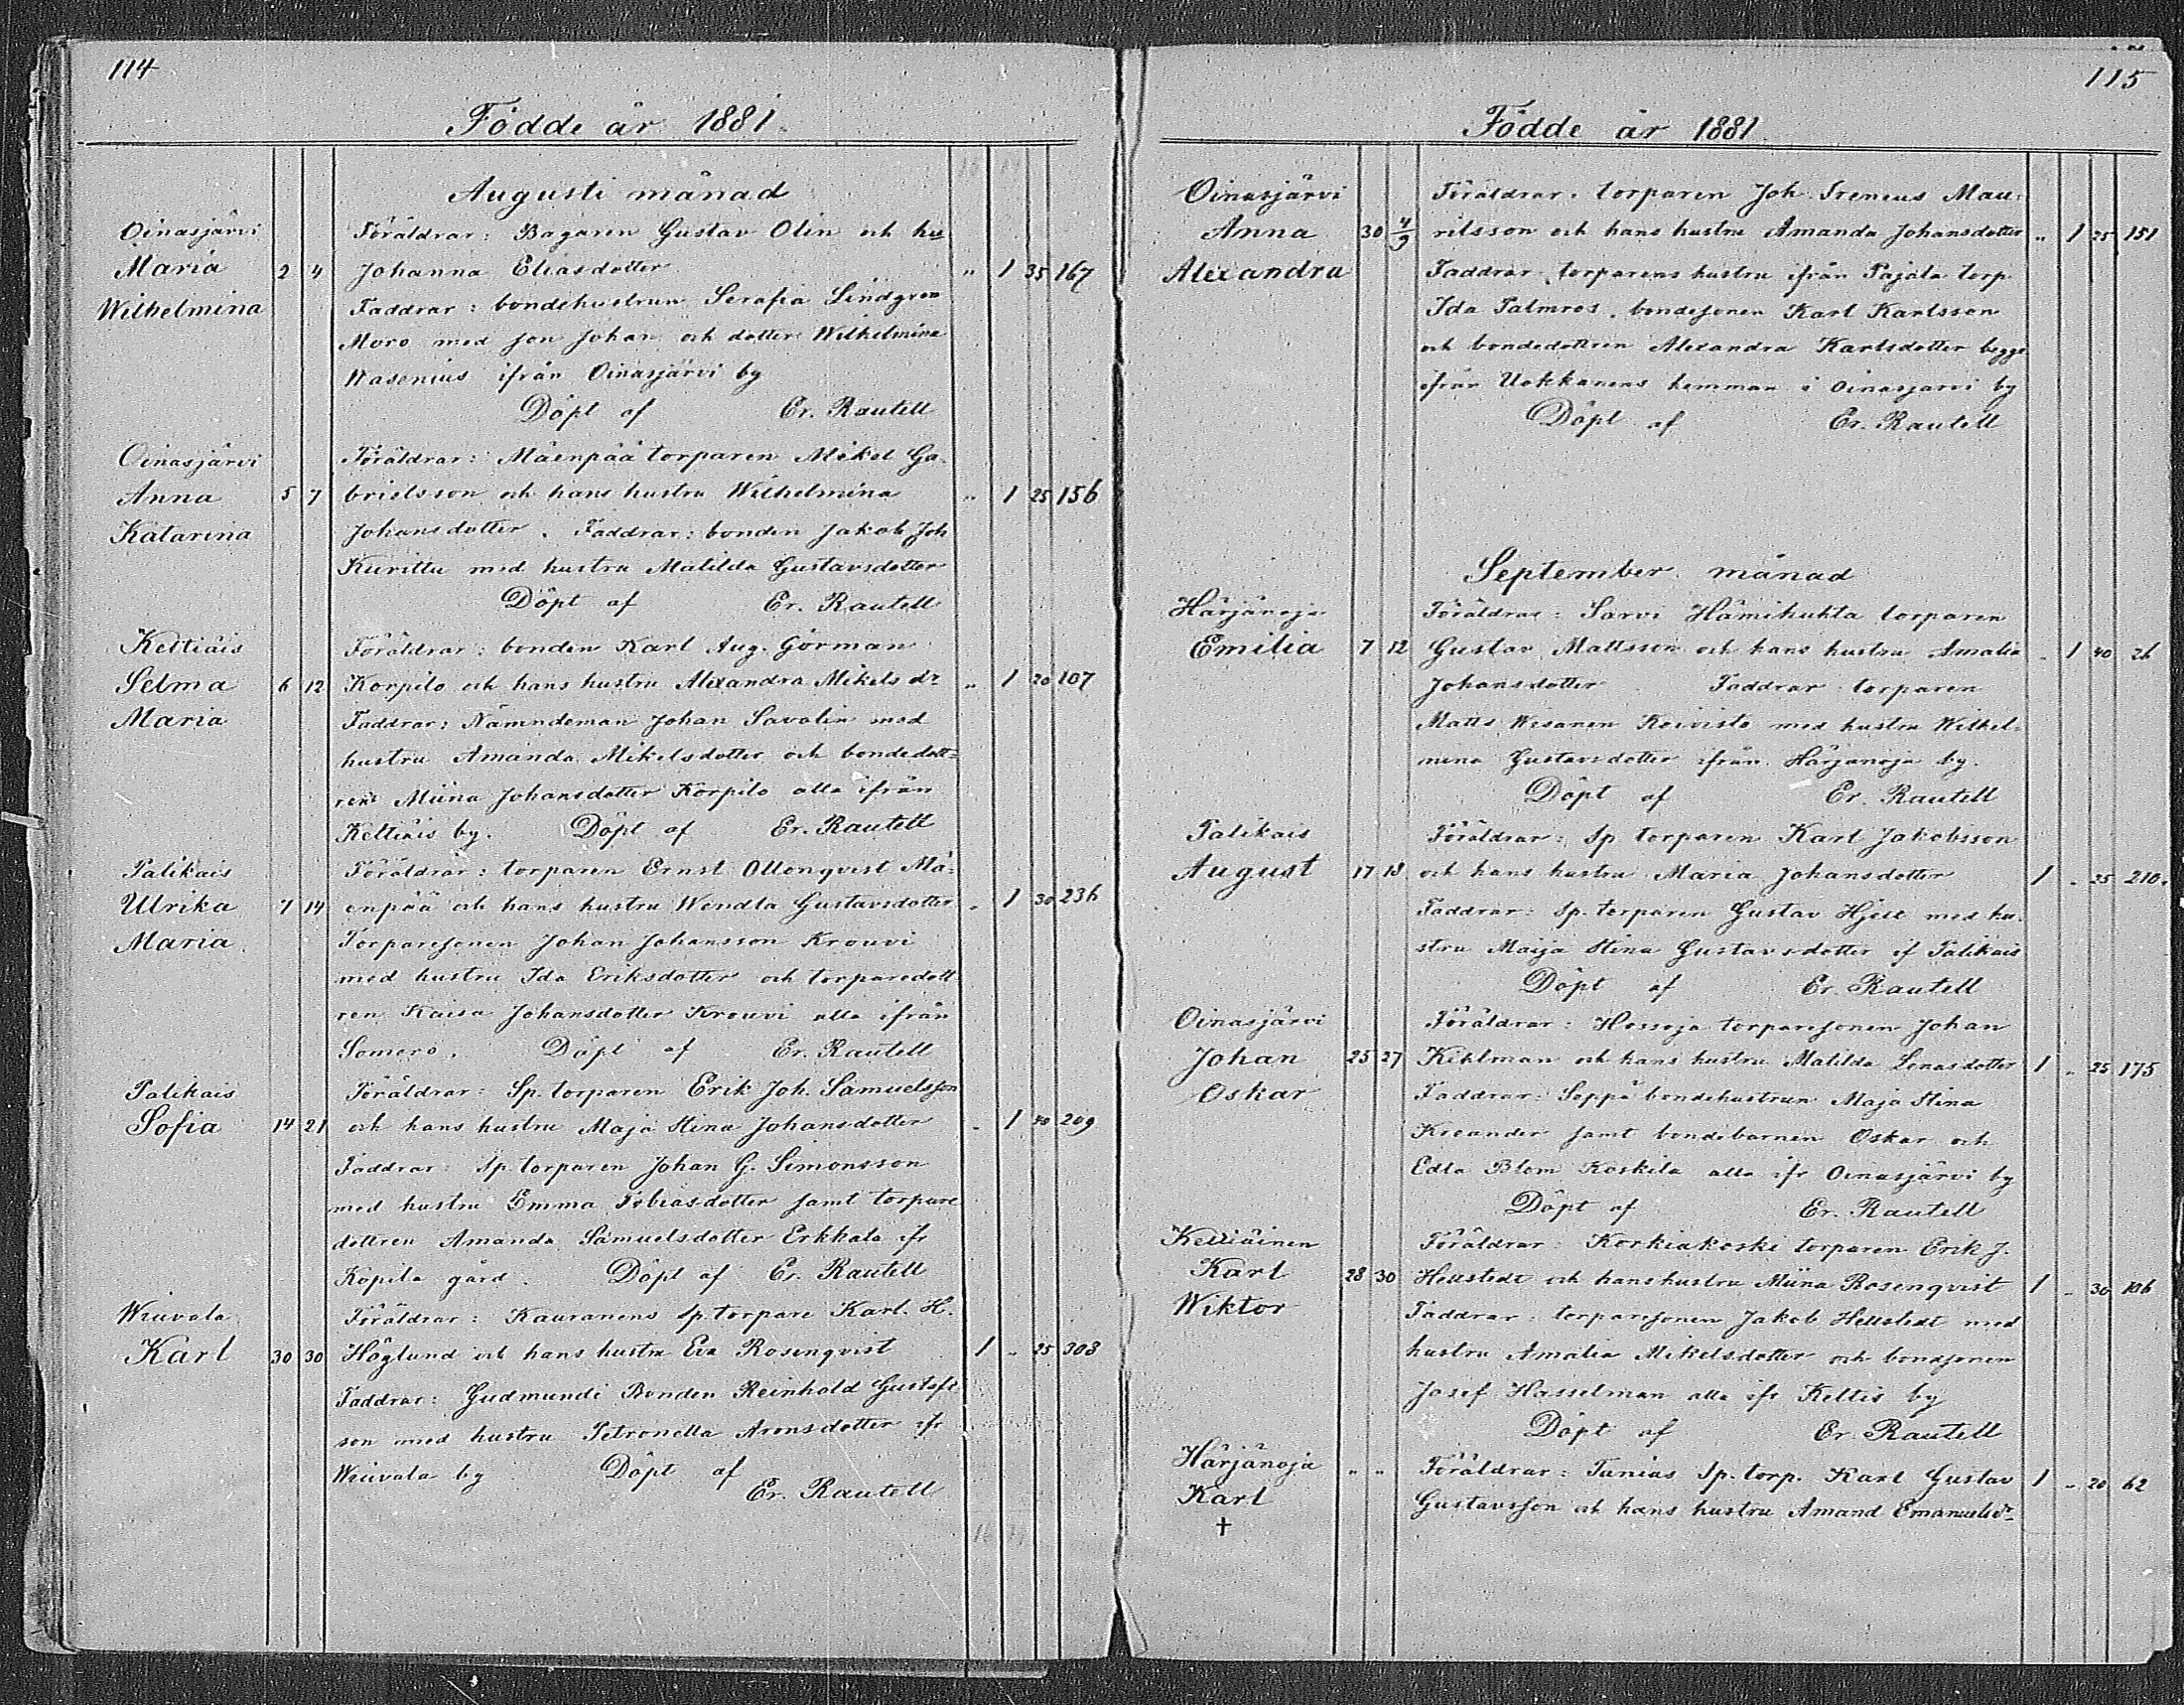 114
Födde år 1881.
Augusti månad
Oinasjärvi Föräldrar: Bagaren Gustav Olin och hu
Maria 2 4 Johanna Eliasdotter „ 1 35 167
Wilhelmina Faddrar: bondehustrun Serafia Lindgren
Moro med son Johan och dotter Wilhelmina
Wasenius ifrån Oinasjärvi by
Döpt af Er. Rautell
Oinasjärvi Föräldrar: Mäenpää torparen Mikel Ga-
Anna 5 7 brielsson och hans hustru Wilhelmina „ 1 25 156
Katarina Johansdotter. Faddrar: bonden Jakob Joh
Kurittu med hustru Matilda Gustavsdotter
Döpt af Er. Rautell
Keltiäis Föräldrar: bonden Karl Aug. Görman
Selma 6 12 Korpilo och hans hustru Alexandra Mikels dr „ 1 20 107
Maria Faddrar: Nämndeman Johan Savalin med
hustru Amanda Mikelsdotter och bondedott-
ren Miina Johansdotter Korpilo alla ifrån
Keltiäis by. Döpt af Er. Rautell
Palikais Föräldrar: torparen Ernst Ollonqvist Mä-
Ulrika 7 14 enpää och hans hustru Wendla Gustavsdotter „ 1 30 236
Maria Torparesonen Johan Johansson Krouvi
med hustru Ida Eriksdotter och torparedott
ren Kaisa Johansdotter Krouvi alla ifrån
Somero. Döpt af Er. Rautell
Palikais Föräldrar: Sp. torparen Erik Joh. Samuelsson
Sofia 14 21 och hans hustru Maja Stina Johansdotter „ 1 40 209
Faddrar: Sp torparen Johan G. Simonsson
med hustru Emma Tobiasdotter samt torpare
dottren Amanda Samuelsdotter Erkkala ifr
Kopila gård. Döpt af Er. Rautell
Wiuvala Föräldrar: Kauranens sp. torpare Karl. H.
Karl 30 30 Höglund och hans hustru Eva Rosenqvist 1 „ 25 308
Faddrar: Gudmundi Bonden Reinhold Gustafs
son med hustru Petronella Aronsdotter ifr
Wiuvala by Döpt af
Er. Rautell
115
Födde år 1881.
Oinasjärvi Föräldrar. torparen Joh. Ireneus Mau-
Anna 30 4/9 ritsson och hans hustru Amanda Johansdotter „ 1 25 151
Alexandra Faddrar, torparens hustru ifrån Pajala torp
Ida Palmros, bondesonen Karl Karlsson
och bondedottren Alexandra Karlsdotter begge
ifrån Uokkanens hemman i Oinasjärvi by
Döpt af Er. Rautell
September månad
Härjänoja Föräldrar: Sarvi Hämihukta torparen
Emilia 7 12 Gustav Mattsson och hans hustru Amalia „ 1 40 26
Johansdotter Faddrar torparen
Matts Wesanen Koivisto med hustru Wilhel-
mina Gustavsdotter ifrån Härjänoja by.
Döpt af Er. Rautell
Palikais Föräldrar: Sp torparen Karl Jakobsson
August 17 18 och hans hustru Maria Johansdotter 1 „ 25 210.
Faddrar: Sp. torparen Gustav Hjelt med hu-
stru Maija Stina Gustavsdotter if Palikais
Döpt af Er. Rautell
Oinasjärvi Föräldrar: Hossoja torparesonen Johan
Johan 25 27 Kihlman och hans hustru Matilda Lenasdotter 1 „ 25 175
Oskar Faddrar: Seppä bondehustrun Maja Stina
Kreander samt bondebarnen Oskar och
Edla Blom Koskila alla ifr Oinasjärvi by
Döpt af Er. Rautell
Keltiäinen Föräldrar: Korkiakoski torparen Erik J.
Karl 28 30 Hellstedt och hans hustru Miina Rosenqvist 1 „ 30 106
Wiktor Faddrar: torparesonen Jakob Hellstedt med
hustru Amalia Mikelsdotter och bondsonen
Josef Hasselman alla ifr Keltis by
Döpt af Er. Rautell
Härjänoja „ „ Föräldrar: Tunias Sp. torp. Karl Gustav 1 „ 20 62
Karl Gustavsson och hans hustru Amand Emanuelsdr
†